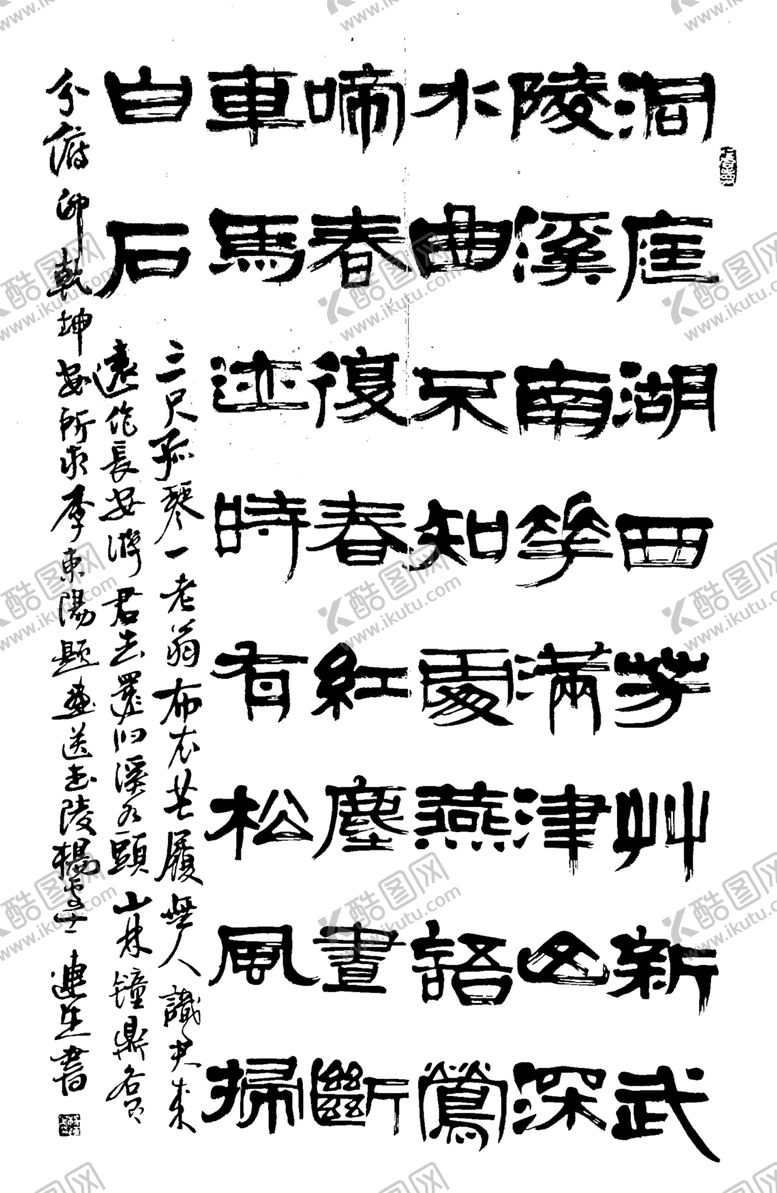 洞庭湖西芳艸新武
陵溪南花满津山深
水曲不知處燕語鶯
啼春復春紅塵晝斷
車馬迹時有松風掃
白石
三尺孤琴一老翁布衣芒履無人識君來
遠作長安游君去還归溪水頭山林鐘鼎各有
分俯仰乾坤安所求李東陽題畫送武陵楊處士 連生書
酷图网
www.ikutu.com